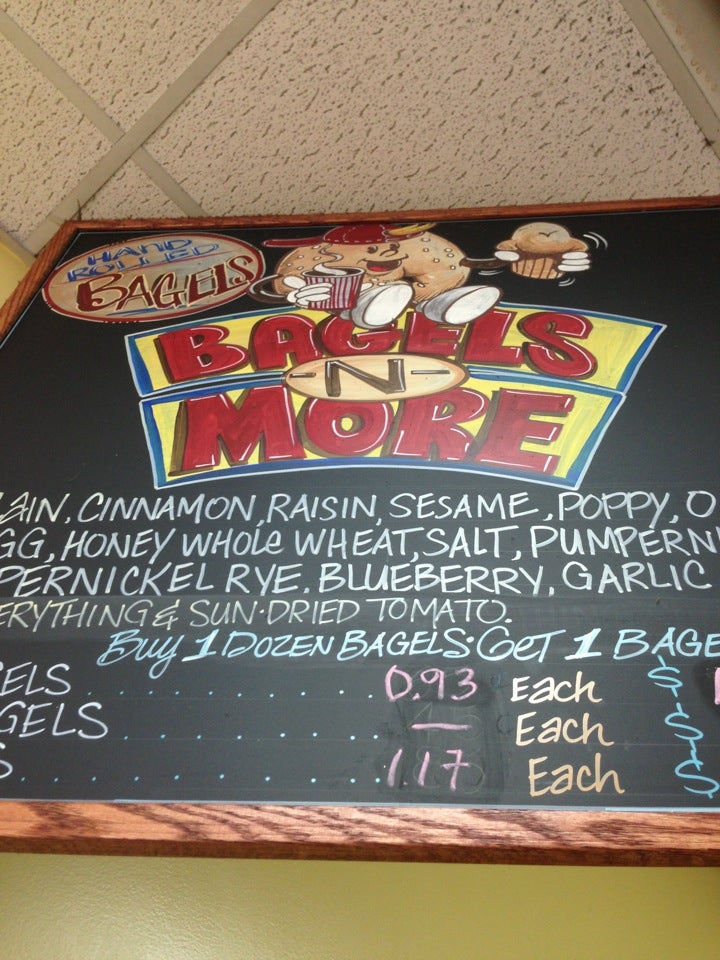 HAND
ROLLED
BAGELS
BAGELS
-N-
MORE
LAIN, CINNAMON, RAISIN, SESAME, POPPY, O
GG, HONEY WHOLE WHEAT, SALT, PUMPERNI
PERNICKEL RYE, BLUEBERRY, GARLIC
ERYTHING & SUN-DRIED TOMATO.
Buy 1 DOZEN BAGELS. GET 1 BAGE
ELS . . . . . . . . 0.93 Each $
GELS . . . . . . . . — Each $
S . . . . . . . . 1.17 Each $